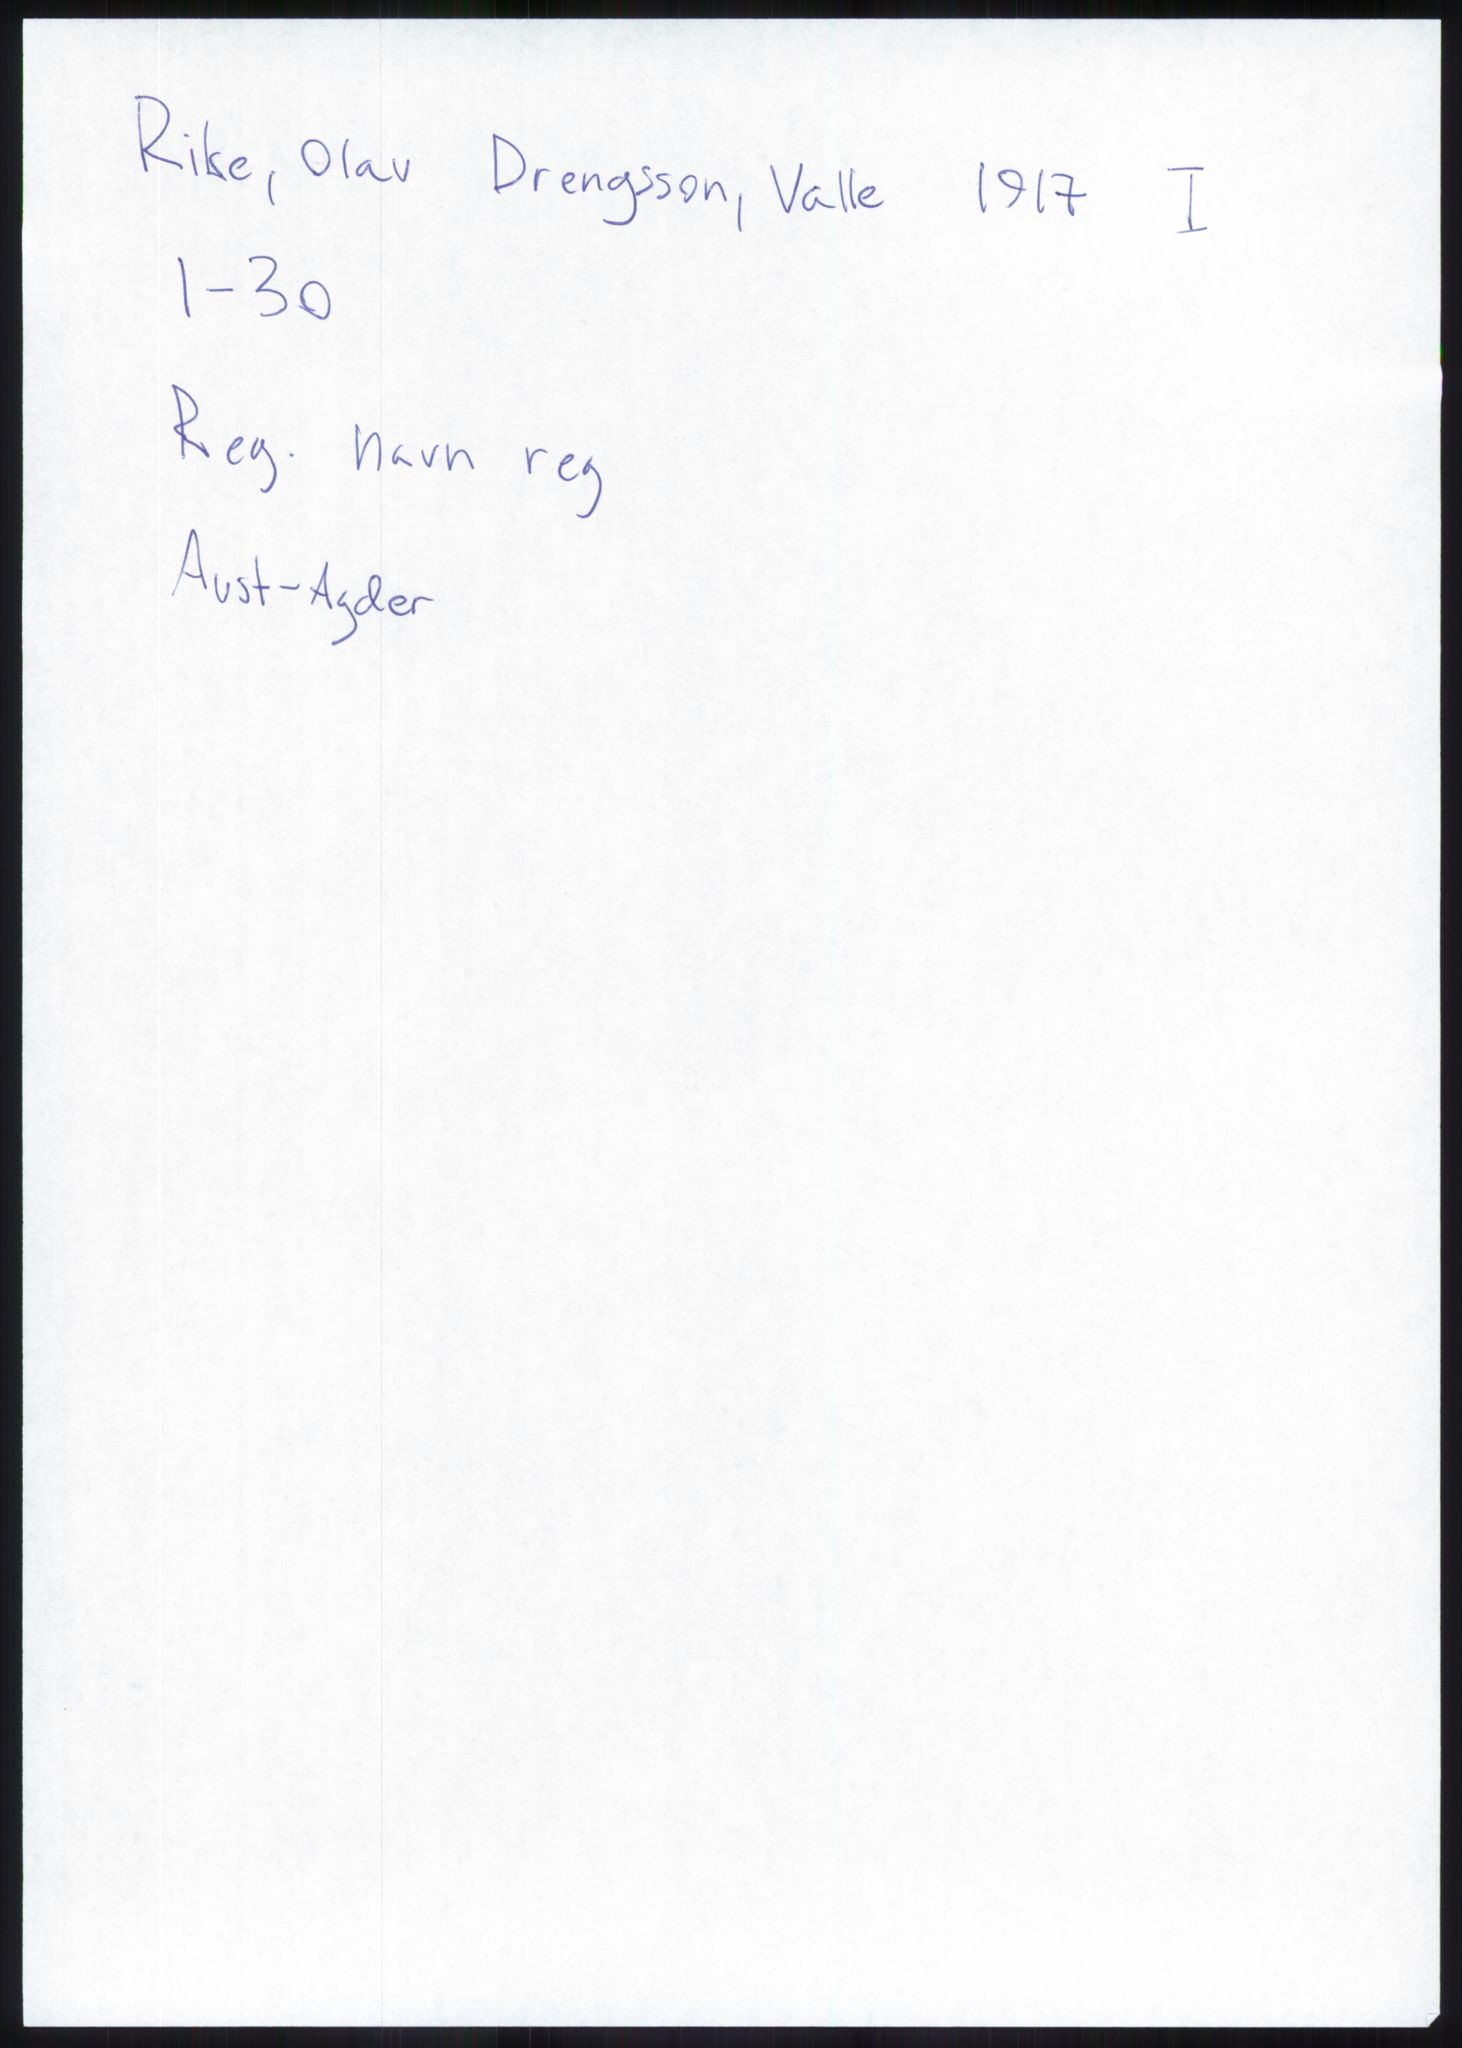 Rike, Olav Drengsson, Valle 1917 I
1-30
Reg. navn reg
Aust-Agder